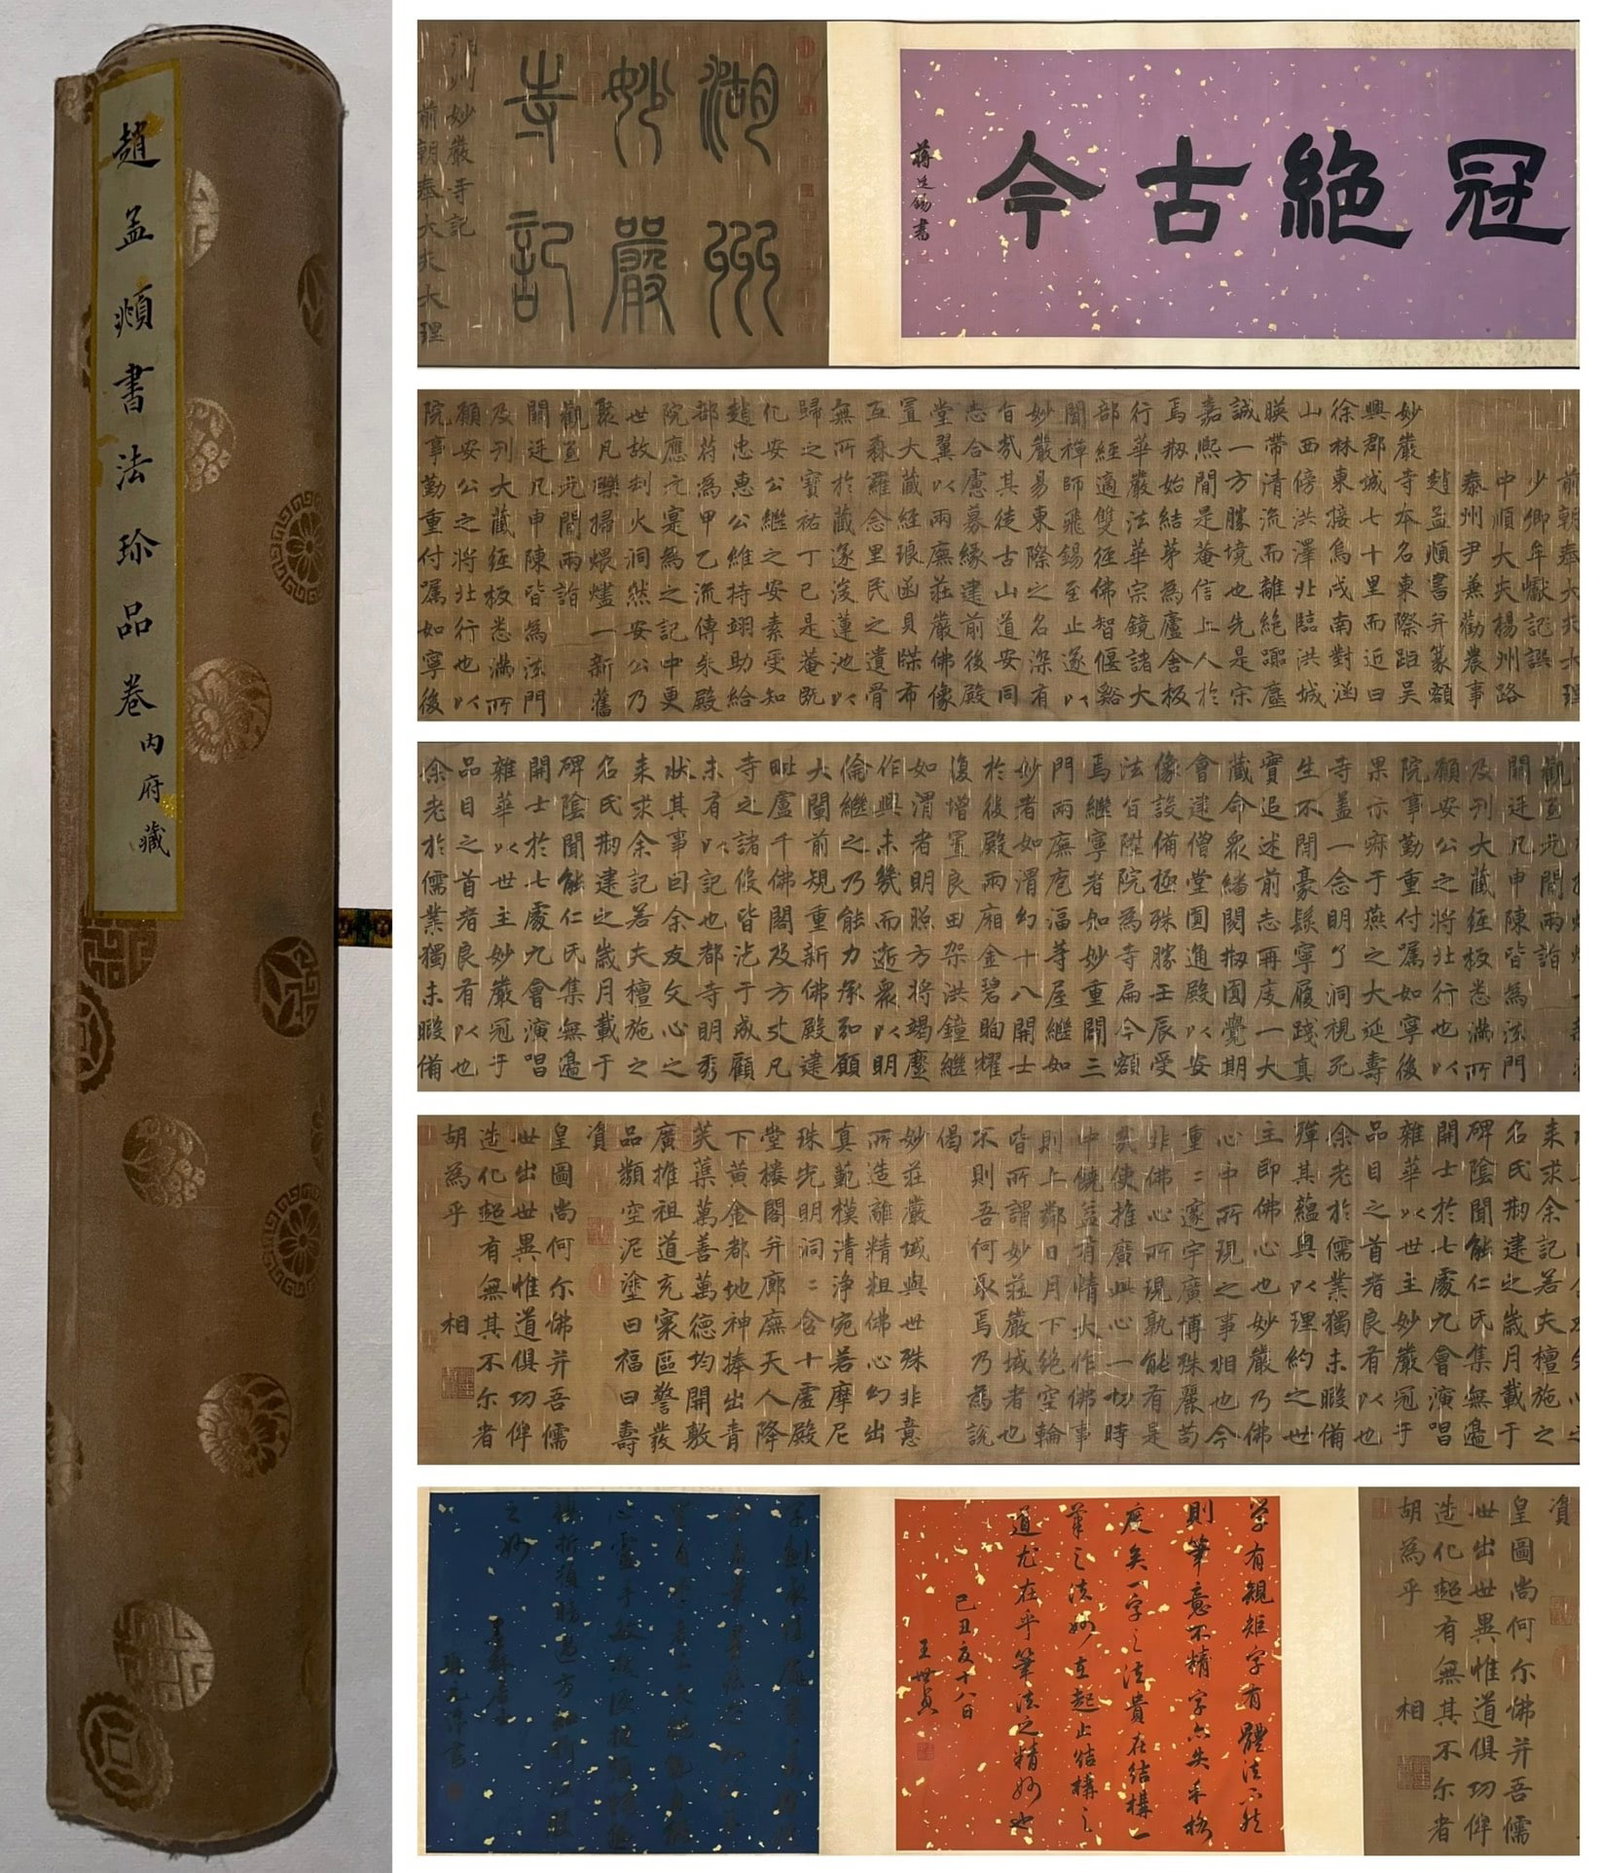 趙孟頫書法珍品卷
內府藏
冠絕古今
蔣廷錫書
湖州
妙嚴
寺記
湖州妙嚴寺記
前朝奉大夫大理
前朝奉大夫大理
少卿牟巘記譔
中順大夫楊州路
泰州尹兼勸農事
趙孟頫書并篆額
妙嚴寺本名東際距吳
興郡城七十里而近曰
徐林東接烏戍南對涵
山西傍洪澤北臨洪城
暎帶清流而離絕囂塵
誠一方勝境也先是宋
嘉熙間是菴信上人於
焉刱始結茅為廬舍板
行華嚴法華宗鏡諸大
部經適雙徑佛智偃谿
聞禪師飛錫至止遂以
妙嚴易東際之名深有
旨哉其徒古山道安同
志合慮募緣建前後殿
堂翼以兩廡莊嚴佛像
置大藏經琅函貝牒布
互森羅念里民之遺骨
無所於藏遂浚蓮池以
歸之寶祐丁巳是菴既
化安公繼之安素受知
趙忠惠公維持翊助給
部苻為甲乙流傳朱殿
院應元寔為之記中更
世故劫火洞然安公乃
聚凡礫掃煨燼一新舊
觀至元間兩詣
闕廷凡申陳皆為法門
及刊大藏經板悉滿所
願安公之將北行也以
院事勤重付囑如寧後
觀至元間兩詣
闕廷凡申陳皆為法門
及刊大藏經板悉滿所
願安公之將北行也以
院事勤重付囑如寧後
果示寂于燕之大延壽
寺蓋一念明了洞視死
生不開豪髮寧履踐真
實追述前志再度一大
藏命眾繙閱刱圓覺期
會建僧堂圓通殿以安
像設備極殊勝壬辰受
法旨陞院為寺扁今額
焉繼寧者如妙重闢三
門兩廡庖湢等屋繼如
妙者如渭幻十八開士
於後殿兩廂金碧眴耀
復增置良田架洪鐘繼
如渭者明照方將竭蹙
作興未幾而逝眾以明
倫繼之乃能力承和願
大闡前規重新佛殿建
毗盧千佛閣及方丈凡
寺之諸役皆汔于成顧
未有以記也都寺明秀
狀其事囙余友文心之
來求余記若夫檀施之
名氏刱建之歲月載于
碑陰聞能仁氏集無邊
開士於七處九會演唱
雜華以世主妙嚴冠于
品目之首者良有以也
余老於儒業獨未暇備
來求余記若夫檀施之
名氏刱建之歲月載于
碑陰聞能仁氏集無邊
開士於七處九會演唱
雜華以世主妙嚴冠于
品目之首者良有以也
余老於儒業獨未暇備
殫其蘊與以理約之世
主即佛心也妙嚴乃佛
心中所現之事相也今
重二邃宇廣博殊麗苟
非佛心所現孰能有是
哉使推廣興心一切時
中饒益有情大作佛事
則上鄰日月下絕空輪
皆所謂妙莊嚴域者也
不則吾何取焉乃為說
偈
妙莊嚴域與世殊非意
所造離精粗佛心幻出
真範模清淨宛若摩尼
珠光明洞二含十虛殿
堂樓閣并廊廡天人降
下黃金都地神捧出青
芙蕖萬善萬德均開敷
廣推祖道充寰區警發
品類空泥塗曰福曰壽
資
皇圖尚何尔佛并吾儒
世出世異惟道俱功侔
造化超有無其不尔者
胡為乎
相
資
皇圖尚何尔佛并吾儒
世出世異惟道俱功侔
造化超有無其不尔者
胡為乎
相
字有規矩字有體法不然
則筆意不精字亦失采格
度矣一字之法貴在結構一
筆之法妙在起止結構之
道尤在乎筆法之精妙也
己丑夏十八日
王世貞
之妙